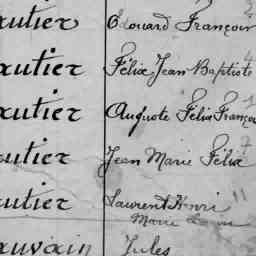 autier Edouard François
autier Félix Jean Baptiste
autier Auguste Félix Franço
autier Jean Marie Félix 7
autier Laurent Henri 11
Marie
auvain Jules